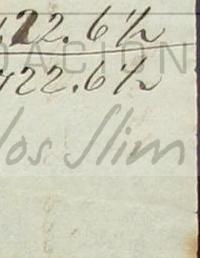 122.6½
DACIÓN
122.6½
los Slim